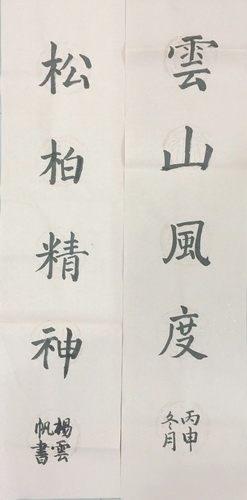 雲山風度
丙申
冬月
松柏精神
楊雲
帆書